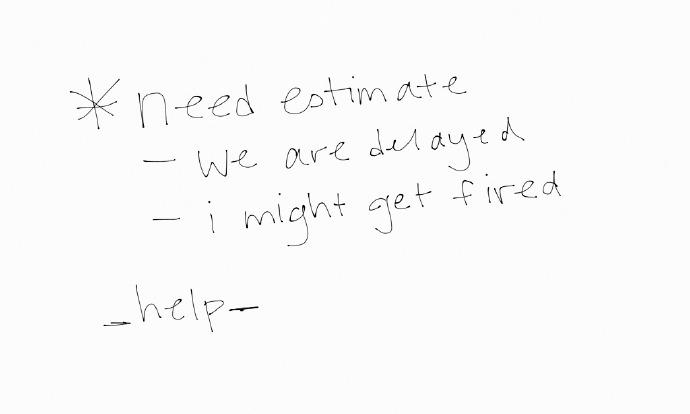 * need estimate
- We are delayed
- i might get fired
- help -